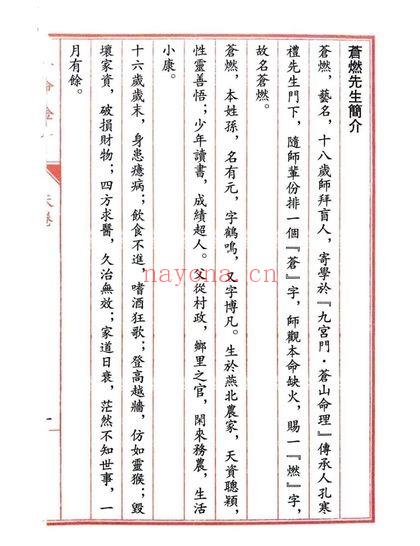 蒼燃先生簡介
蒼燃，藝名，十八歲師拜盲人，寄學於『九宮門·蒼山命理』傳承人孔寒
禮先生門下，隨師輩份排一個『蒼』字，師觀本命缺火，賜一『燃』字，
故名蒼燃。
蒼燃，本姓孫，名有元，字鶴鳴，又字博凡。生於燕北農家，天資聰穎，
性靈善悟；少年讀書，成績超人。父從村政，鄉里之官，閑來務農，生活
小康。
十六歲歲末，身患癔病；飲食不進，嗜酒狂歌；登高越牆，仿如靈猴；毀
壞家資，破損財物；四方求醫，久治無效；家道日衰，茫然不知世事，一
月有餘。
天卷
一
nayona.cn